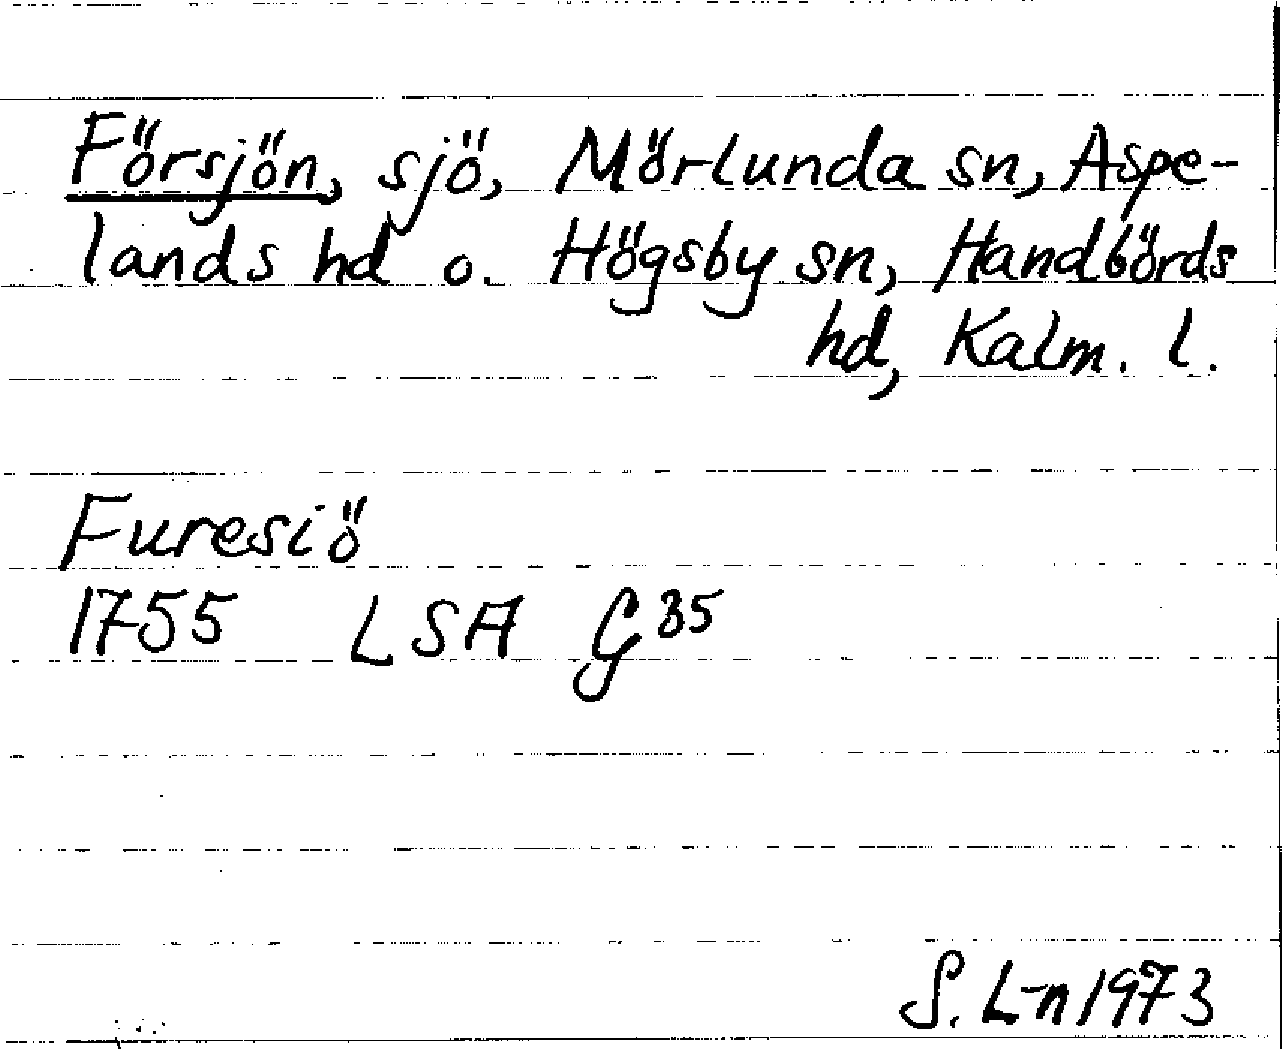 Försjön, sjö, Mörlunda sn, Aspe-
lands hd o. Högsby sn, Handbörds
hd, Kalm. l.
Furesiö
1755 LSA G 35
S. L-n 1973